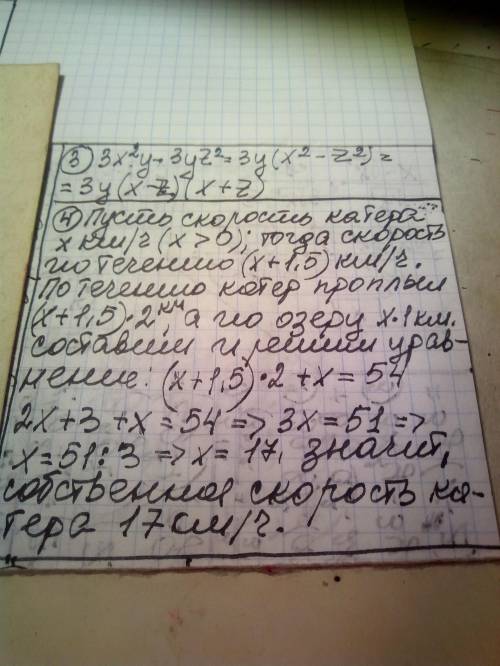 ③ 3x²y - 3yz² = 3y(x² - z²) =
= 3y(x - z)(x + z)
④ Пусть скорость катера
x км/ч (x > 0); тогда скорость
по течению (x+1,5) км/ч.
По течению катер проплыл
(x+1,5)·2 км, а по озеру x·1 км.
Составим и решим урав-
нение: (x+1,5)·2 + x = 54
2x + 3 + x = 54 => 3x = 51 =>
x = 51 : 3 => x = 17. Значит,
собственная скорость ка-
тера 17 км/ч.